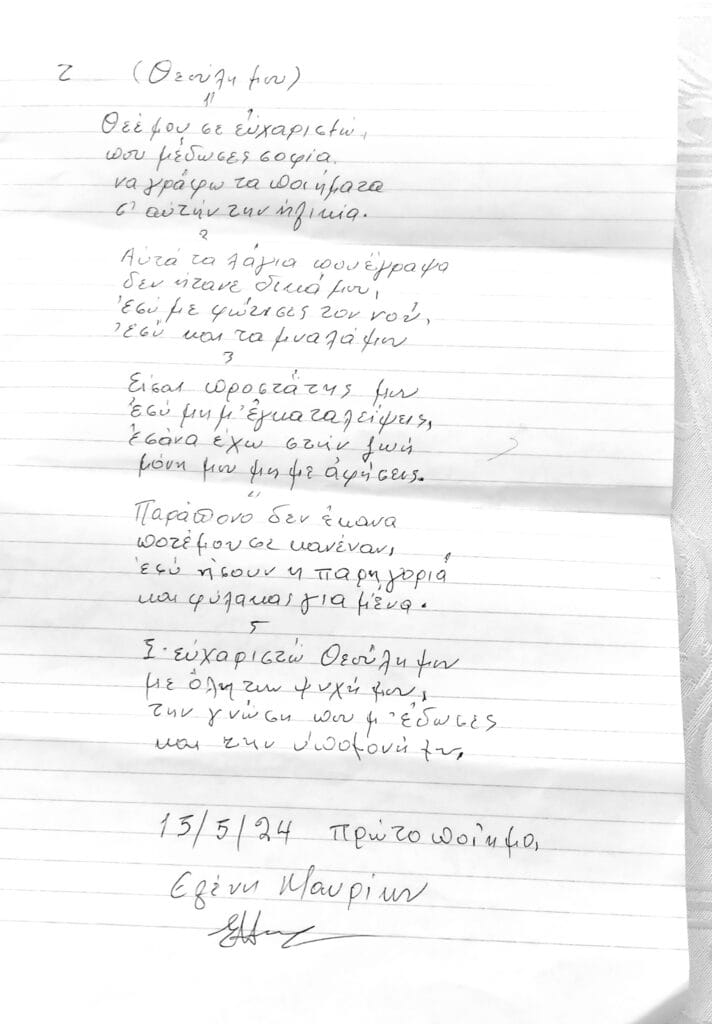 2 (Θεούλη μου)
1
Θεέ μου σε εὐχαριστῶ,
που μέδωσες σοφία.
να γράφω τα ποιήματα
σ' αὐτήν την ἡλικία.
2
Αὐτά τα λόγια που ἔγραψα
δεν ἤτανε δικά μου,
ἐσύ με φώτισες τον νού,
ἐσύ και τα μυαλά μου
3
Εἶσαι προστάτης μου
ἐσύ μη μ' ἐγκαταλείψεις,
ἐσένα ἔχω στήν ζωή
μόνη μου μη με ἀφήσεις.
4
Παράπονο δεν ἔκανα
ποτέ μου σε κανέναν,
ἐσύ ἤσουν η παρηγοριά
και φύλακας για μένα.
5
Σ' εὐχαριστῶ Θεούλη μου
με ὅλη την ψυχή μου,
την γνώση που μ' ἔδωσες
και την ὑπομονή
15/5/24 πρῶτο ποίημα,
Ελένη Μαυρίκου